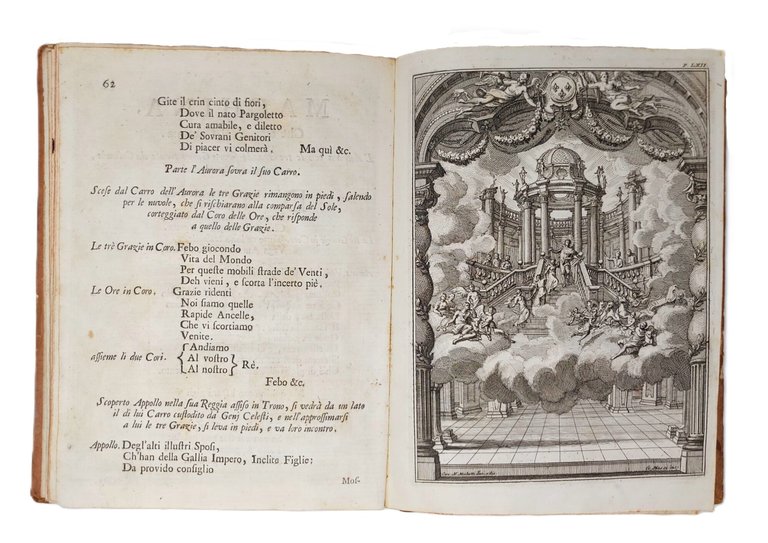 62
Gite il crin cinto di fiori,
Dove il nato Pargoletto
Cura amabile, e diletto
De' Sovrani Genitori
Di piacer vi colmerà. Ma quì &c.
Parte l'Aurora sovra il suo Carro.
Scese dal Carro dell'Aurora le tre Grazie rimangono in piedi, salendo
per le nuvole, che si rischiarano alla comparsa del Sole,
corteggiato dal Coro delle Ore, che risponde
a quello delle Grazie.
Le trè Grazie in Coro. Febo giocondo
Vita del Mondo
Per queste mobili strade de' Venti,
Deh vieni, e scorta l'incerto piè.
Le Ore in Coro. Grazie ridenti
Noi siamo quelle
Rapide Ancelle,
Che vi scortiamo
Venite.
Andiamo
assieme li due Cori. Al vostro
Al nostro Rè.
Febo &c.
Scoperto Appollo nella sua Reggia assiso in Trono, si vedrà da un lato
il di lui Carro custodito da' Genj Celesti, e nell'approssimarsi
a lui le tre Grazie, si leva in piedi, e va loro incontro.
Appollo. Degl'alti illustri Sposi,
Ch'han della Gallia Impero, Inclite Figlie;
Da provido consiglio
Mos-
P. LXII